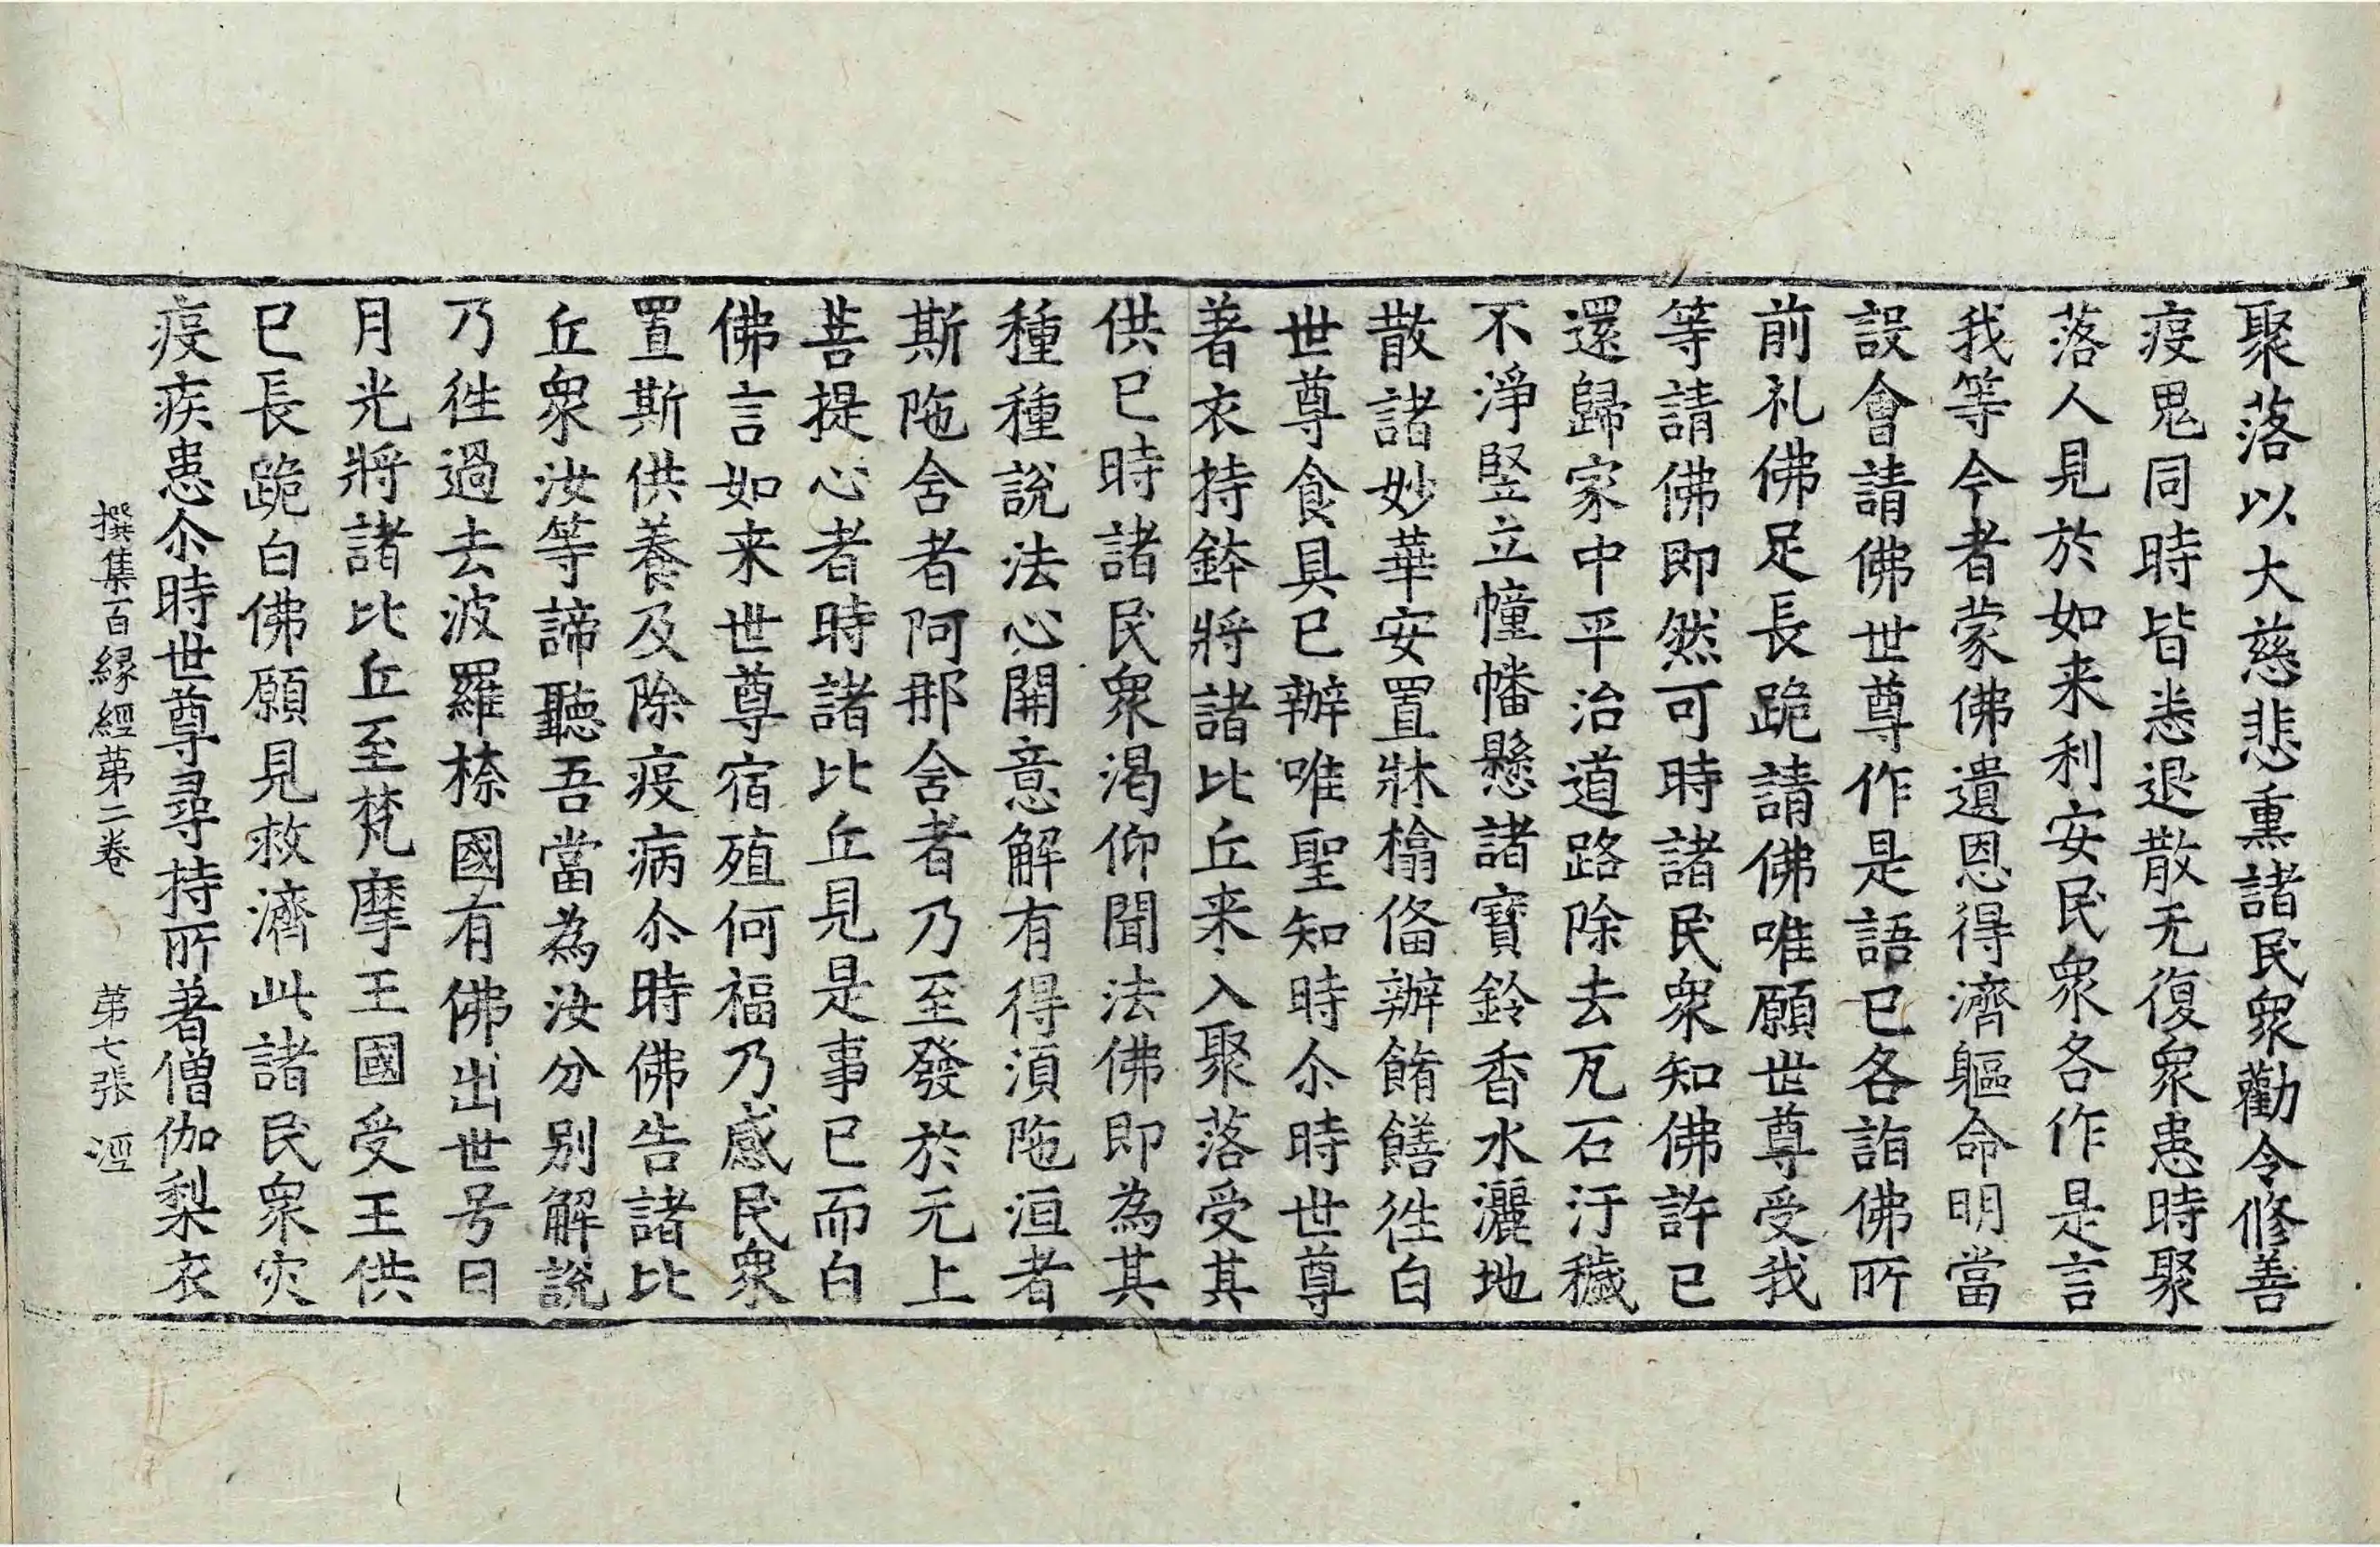 聚落以大慈悲熏諸民衆勸令修善
疫鬼同時皆悉退散无復衆患時聚
落人見於如来利安民衆各作是言
我等今者蒙佛遺恩得濟軀命明當
設會請佛世尊作是語已各詣佛所
前礼佛足長跪請佛唯願世尊受我
等請佛即然可時諸民衆知佛許已
還歸家中平治道路除去瓦石汙穢
不淨竪立幢幡懸諸寶鈴香水灑地
散諸妙華安置牀榻俻辦餚饍徃白
世尊食具已辦唯聖知時尒時世尊
著衣持鉢將諸比丘来入聚落受其
供已時諸民衆渴仰聞法佛即為其
種種說法心開意解有得湏陁洹者
斯陁含者阿那含者乃至發於无上
菩提心者時諸比丘見是事已而白
佛言如来世尊宿殖何福乃感民衆
置斯供養及除疫病尒時佛告諸比
丘衆汝等諦聽吾當為汝分別解說
乃徃過去波羅㮈國有佛出世号曰
月光將諸比丘至梵摩王國受王供
已長跪白佛願見救濟此諸民衆灾
疫疾患尒時世尊尋持所著僧伽梨衣
撰集百緣經苐二卷 苐七張 涇